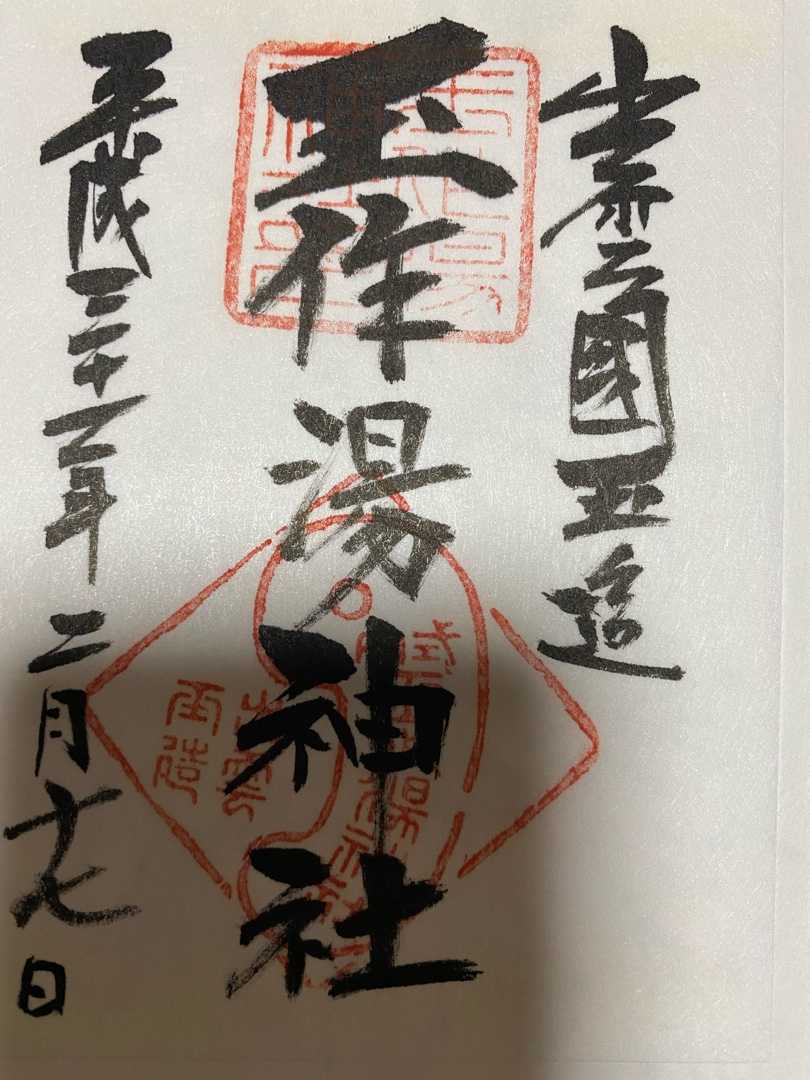 出雲國玉造
玉作湯神社
平成三十一年二月十七日
出雲
玉造